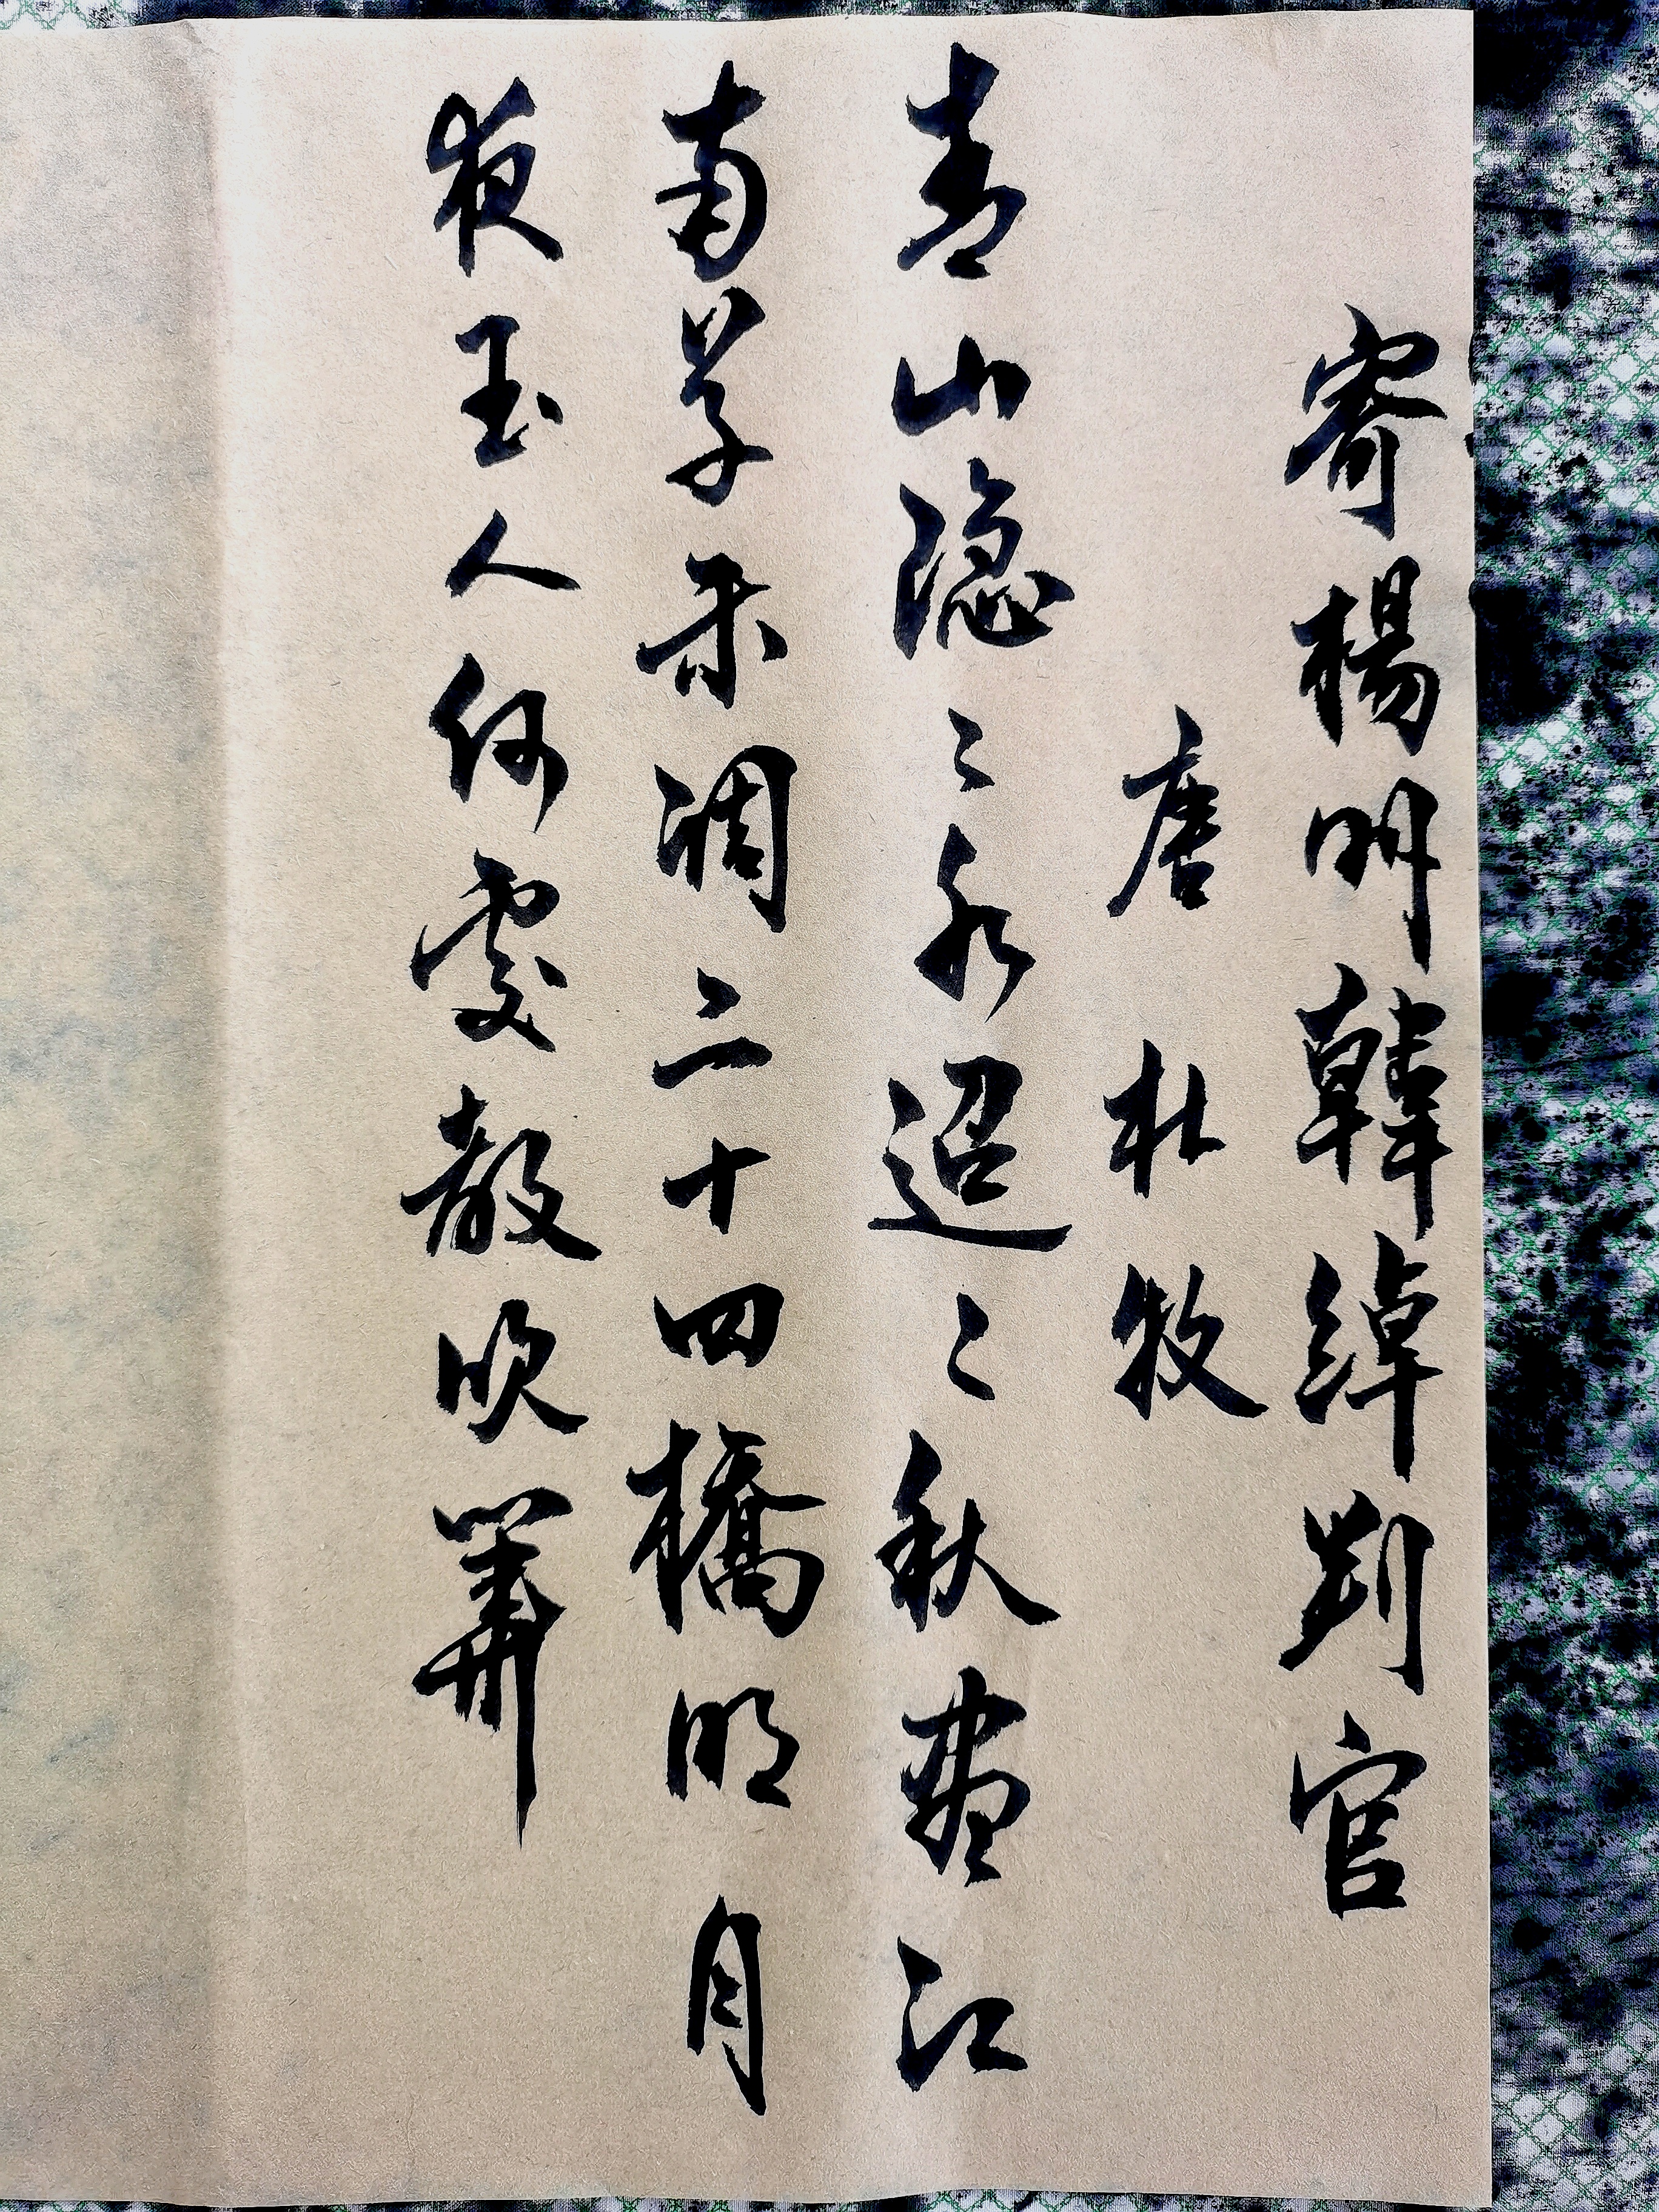 寄楊州韓綽判官
唐杜牧
青山隐〻水迢〻秋盡江
南草未凋二十四橋明月
夜玉人何處教吹簫